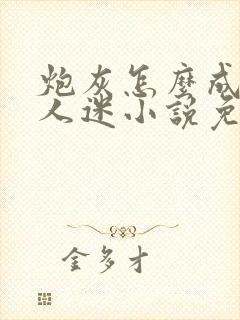 炮灰怎麼成
人迷小說免
金多才